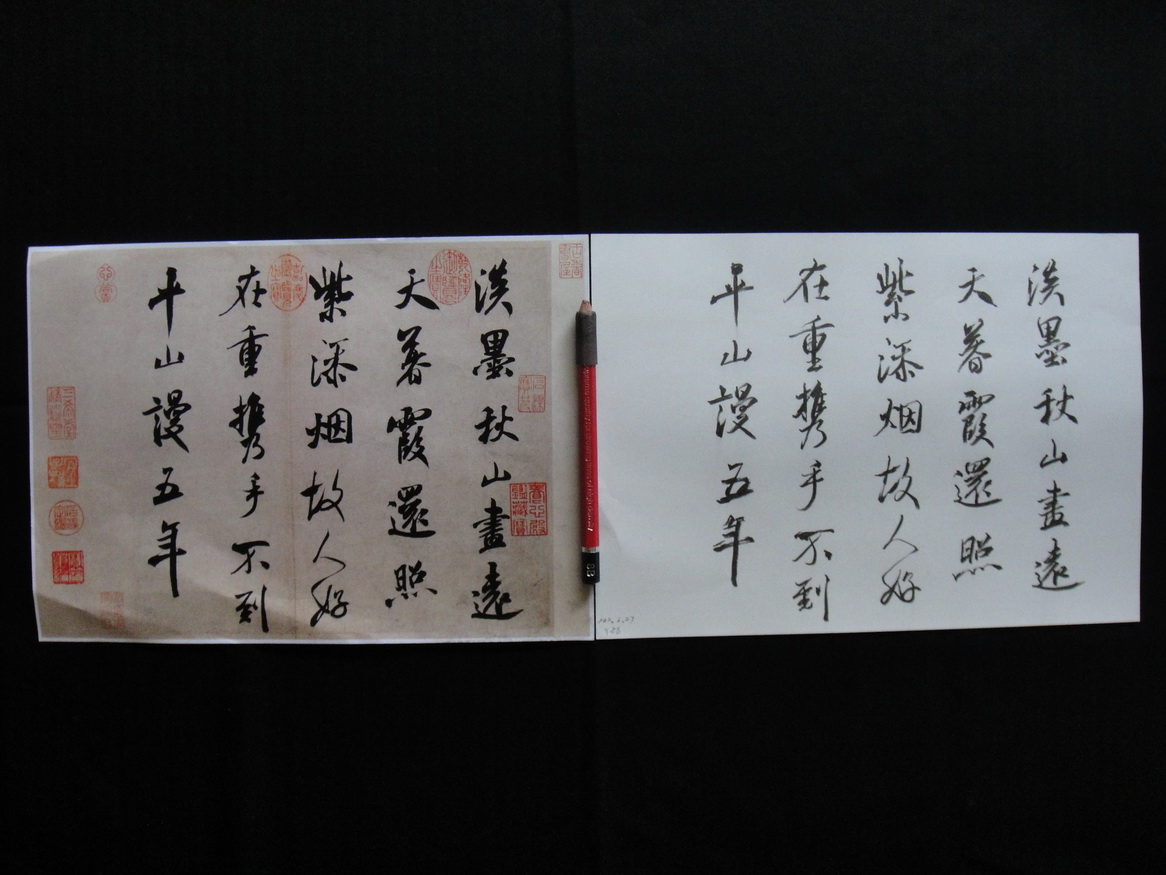 淡墨秋山畫遠
天暮霞還照
紫深烟故人好
在重攜手不到
平山謾五年
淡墨秋山畫遠
天暮霞還照
紫深烟故人好
在重攜手不到
平山謾五年